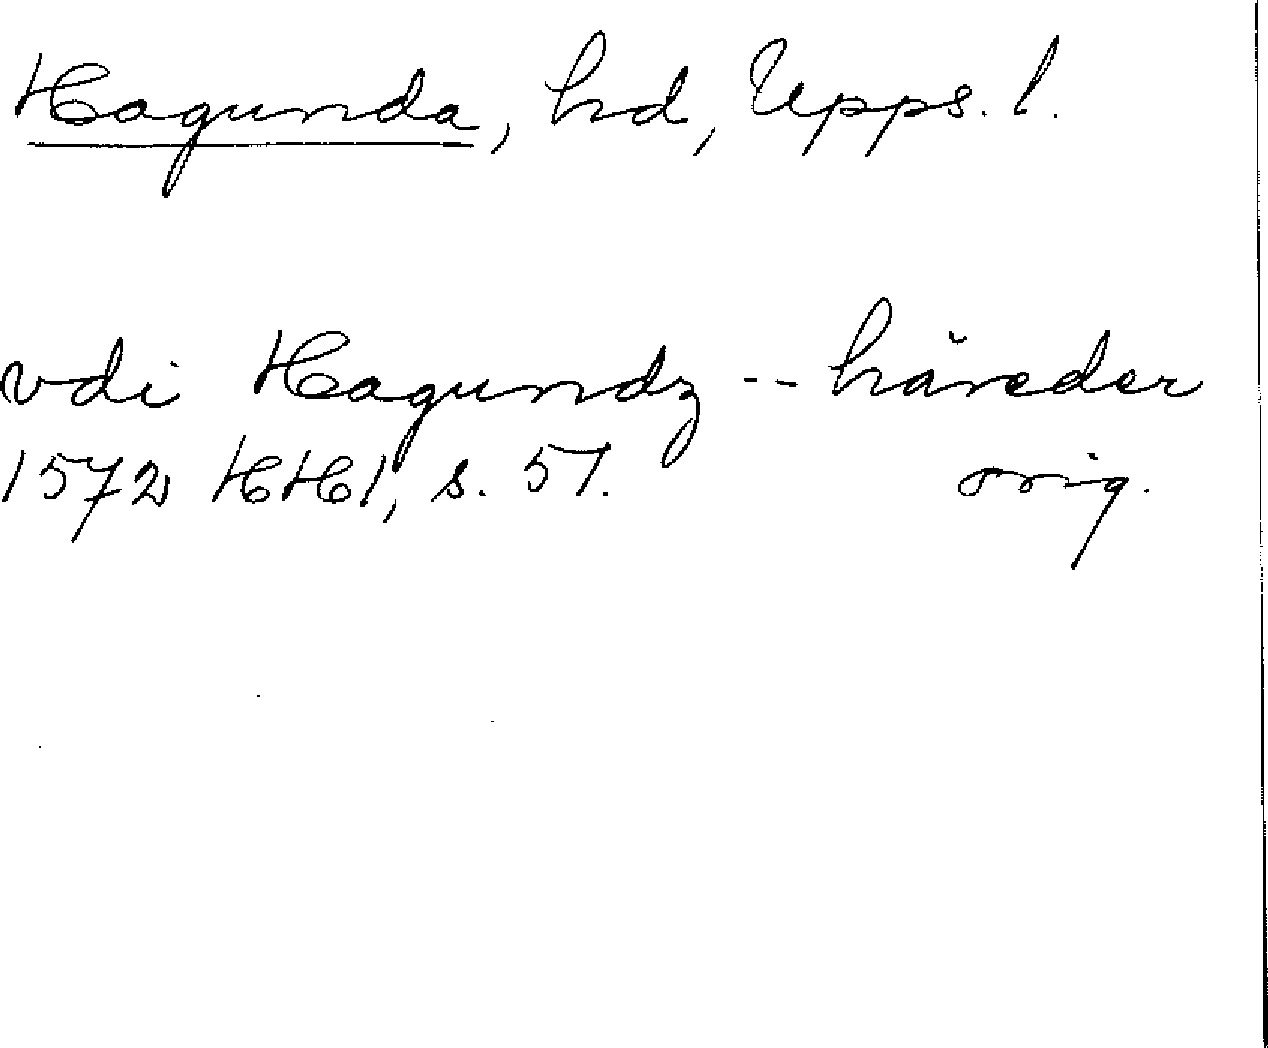 Hagunda, hd, Upps. l.
vdi Hagundz -- häreder
1572 HH1, s. 51. orig.